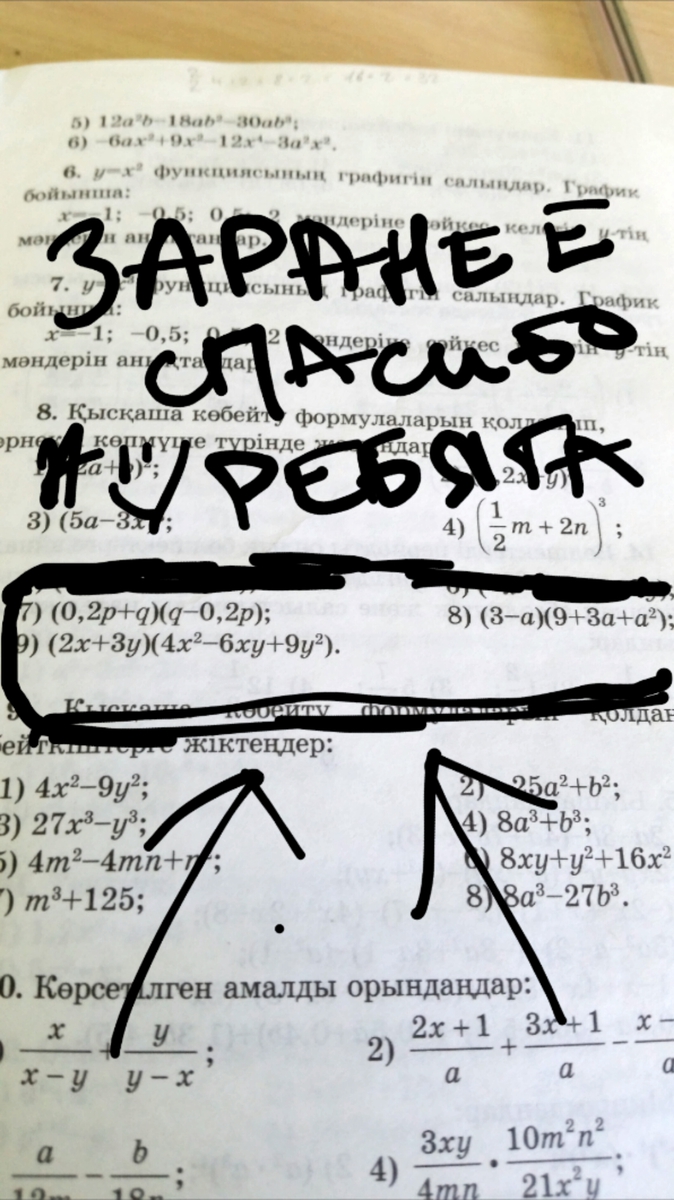 5) 12a²b–18ab²–30ab³;
6) –6ax²+9x²–12x⁴–3a²x².
6. y=x² функциясының графигін салыңдар. График
бойынша:
x=–1; –0,5; 0,5; 2 мәндеріне сәйкес келетін y-тің
мәндерін анықтаңдар.
ЗАРАНЕЕ
7. y=x³ функциясының графигін салыңдар. График
бойынша:
x=–1; –0,5; 0,5; 2 мәндеріне сәйкес келетін y-тің
мәндерін анықтаңдар
СПАСИБО
8. Қысқаша көбейту формулаларын қолданып,
өрнекті көпмүше түрінде жазыңдар
РЕБЯТА
3) (5a–3x
4) (1/2 m + 2n)³;
7) (0,2p+q)(q–0,2p);
8) (3–a)(9+3a+a²);
9) (2x+3y)(4x²–6xy+9y²).
9 Қысқаша көбейту формулаларын қолдан
бейткіштерге жіктеңдер:
1) 4x²–9y²;
2) 25a²+b²;
3) 27x³–y³;
4) 8a³+b³;
5) 4m²–4mn+n²;
6) 8xy+y²+16x²
7) m³+125;
8) 8a³–27b³.
0. Көрсетілген амалды орындаңдар:
x/(x – y) + y/(y – x);
2) (2x + 1)/a + (3x + 1)/a – x –
a/12m – b/18n;
4) 3xy/4mn · 10m²n²/21x²y;